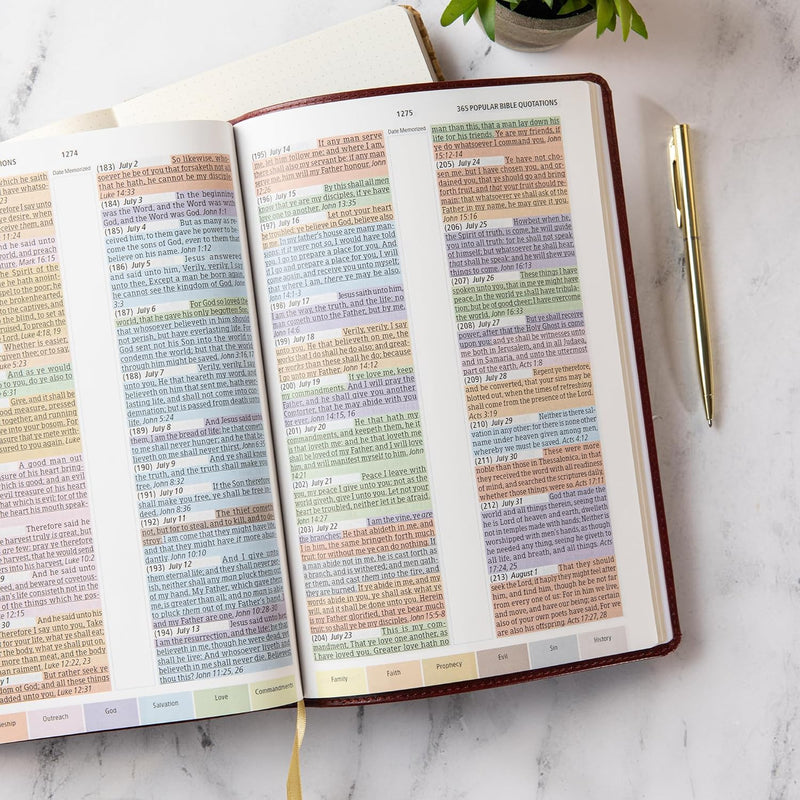 IONS
1274
Date Memorized
which he saith
23
11:24
Mark 16:15
the Spirit of the
Luke 4:18, 19
Luke 5:23
And as we would
6:31
A good man out
Therefore said he
Luke 10:2
And he said unto
12:15
And he said unto his
Luke 12:22, 23
But rather seek ye
Luke 12:31
(183) July 2 So likewise, who-
soever he be of you that forsaketh not all
that he hath, he cannot be my disciple.
Luke 14:33
(184) July 3 In the beginning
was the Word, and the Word was with
God, and the Word was God. John 1:1
(185) July 4 But as many as re-
ceived him, to them gave he power to be-
come the sons of God, even to them that
believe on his name. John 1:12
(186) July 5 Jesus answered
and said unto him, Verily, verily, I say
unto thee, Except a man be born again,
he cannot see the kingdom of God. John
3:3
(187) July 6 For God so loved the
world, that he gave his only begotten Son,
that whosoever believeth in him should
not perish, but have everlasting life. For
God sent not his Son into the world to
condemn the world; but that the world
through him might be saved. John 3:16, 17
(188) July 7 Verily, verily, I say
unto you, He that heareth my word, and
believeth on him that sent me, hath ever-
lasting life, and shall not come into con-
demnation; but is passed from death unto
life. John 5:24
(189) July 8 And Jesus said unto
them, I am the bread of life: he that com-
eth to me shall never hunger; and he that be-
lieveth on me shall never thirst. John 6:35
(190) July 9 And ye shall know
the truth, and the truth shall make you
free. John 8:32
(191) July 10 If the Son therefore
shall make you free, ye shall be free in-
deed. John 8:36
(192) July 11 The thief cometh
not, but for to steal, and to kill, and to de-
stroy: I am come that they might have life,
and that they might have it more abun-
dantly. John 10:10
(193) July 12 And I give unto
them eternal life; and they shall never per-
ish, neither shall any man pluck them out
of my hand. My Father, which gave them
me, is greater than all; and no man is able
to pluck them out of my Father's hand.
I and my Father are one. John 10:28-30
(194) July 13 Jesus said unto her,
I am the resurrection, and the life: he that
believeth in me, though he were dead, yet
shall he live: And whosoever liveth and
believeth in me shall never die. Believest
thou this? John 11:25, 26
Outreach
God
Salvation
Love
Commandments
1275
365 POPULAR BIBLE QUOTATIONS
Date Memorized
(195) July 14 If any man serve
me, let him follow me; and where I am,
there shall also my servant be: if any man
serve me, him will my Father honour. John
12:26
(196) July 15 By this shall all men
know that ye are my disciples, if ye have
love one to another. John 13:35
(197) July 16 Let not your heart
be troubled: ye believe in God, believe also
in me. In my Father's house are many man-
sions: if it were not so, I would have told
you. I go to prepare a place for you. And
if I go and prepare a place for you, I will
come again, and receive you unto myself;
that where I am, there ye may be also.
John 14:1-3
(198) July 17 Jesus saith unto him,
I am the way, the truth, and the life: no
man cometh unto the Father, but by me.
John 14:6
(199) July 18 Verily, verily, I say
unto you, He that believeth on me, the
works that I do shall he do also; and great-
er works than these shall he do; because
I go unto my Father. John 14:12
(200) July 19 If ye love me, keep
my commandments. And I will pray the
Father, and he shall give you another
Comforter, that he may abide with you
for ever; John 14:15, 16
(201) July 20 He that hath my
commandments, and keepeth them, he it
is that loveth me: and he that loveth me
shall be loved of my Father, and I will love
him, and will manifest myself to him. John
14:21
(202) July 21 Peace I leave with
you, my peace I give unto you: not as the
world giveth, give I unto you. Let not your
heart be troubled, neither let it be afraid.
John 14:27
(203) July 22 I am the vine, ye are
the branches: He that abideth in me, and
I in him, the same bringeth forth much
fruit: for without me ye can do nothing. If
a man abide not in me, he is cast forth as
a branch, and is withered; and men gath-
er them, and cast them into the fire, and
they are burned. If ye abide in me, and my
words abide in you, ye shall ask what ye
will, and it shall be done unto you. Herein
is my Father glorified, that ye bear much
fruit; so shall ye be my disciples. John 15:5-8
(204) July 23 This is my com-
mandment, That ye love one another, as
I have loved you. Greater love hath no
man than this, that a man lay down his
life for his friends. Ye are my friends, if
ye do whatsoever I command you. John
15:12-14
(205) July 24 Ye have not cho-
sen me, but I have chosen you, and or-
dained you, that ye should go and bring
forth fruit, and that your fruit should re-
main: that whatsoever ye shall ask of the
Father in my name, he may give it you.
John 15:16
(206) July 25 Howbeit when he,
the Spirit of truth, is come, he will guide
you into all truth: for he shall not speak
of himself; but whatsoever he shall hear,
that shall he speak: and he will shew you
things to come. John 16:13
(207) July 26 These things I have
spoken unto you, that in me ye might have
peace. In the world ye shall have tribula-
tion: but be of good cheer; I have overcome
the world. John 16:33
(208) July 27 But ye shall receive
power, after that the Holy Ghost is come
upon you: and ye shall be witnesses unto
me both in Jerusalem, and in all Judaea,
and in Samaria, and unto the uttermost
part of the earth. Acts 1:8
(209) July 28 Repent ye therefore,
and be converted, that your sins may be
blotted out, when the times of refreshing
shall come from the presence of the Lord.
Acts 3:19
(210) July 29 Neither is there sal-
vation in any other: for there is none other
name under heaven given among men,
whereby we must be saved. Acts 4:12
(211) July 30 These were more
noble than those in Thessalonica, in that
they received the word with all readiness
of mind, and searched the scriptures daily,
whether those things were so. Acts 17:11
(212) July 31 God that made the
world and all things therein, seeing that
he is Lord of heaven and earth, dwelleth
not in temples made with hands; Neither is
worshipped with men's hands, as though
he needed any thing, seeing he giveth to
all life, and breath, and all things. Acts
17:24, 25
(213) August 1 That they should
seek the Lord, if haply they might feel after
him, and find him, though he be not far
from every one of us: For in him we live,
and move, and have our being; as certain
also of your own poets have said, For we
are also his offspring. Acts 17:27, 28
Family
Faith
Prophecy
Evil
Sin
History